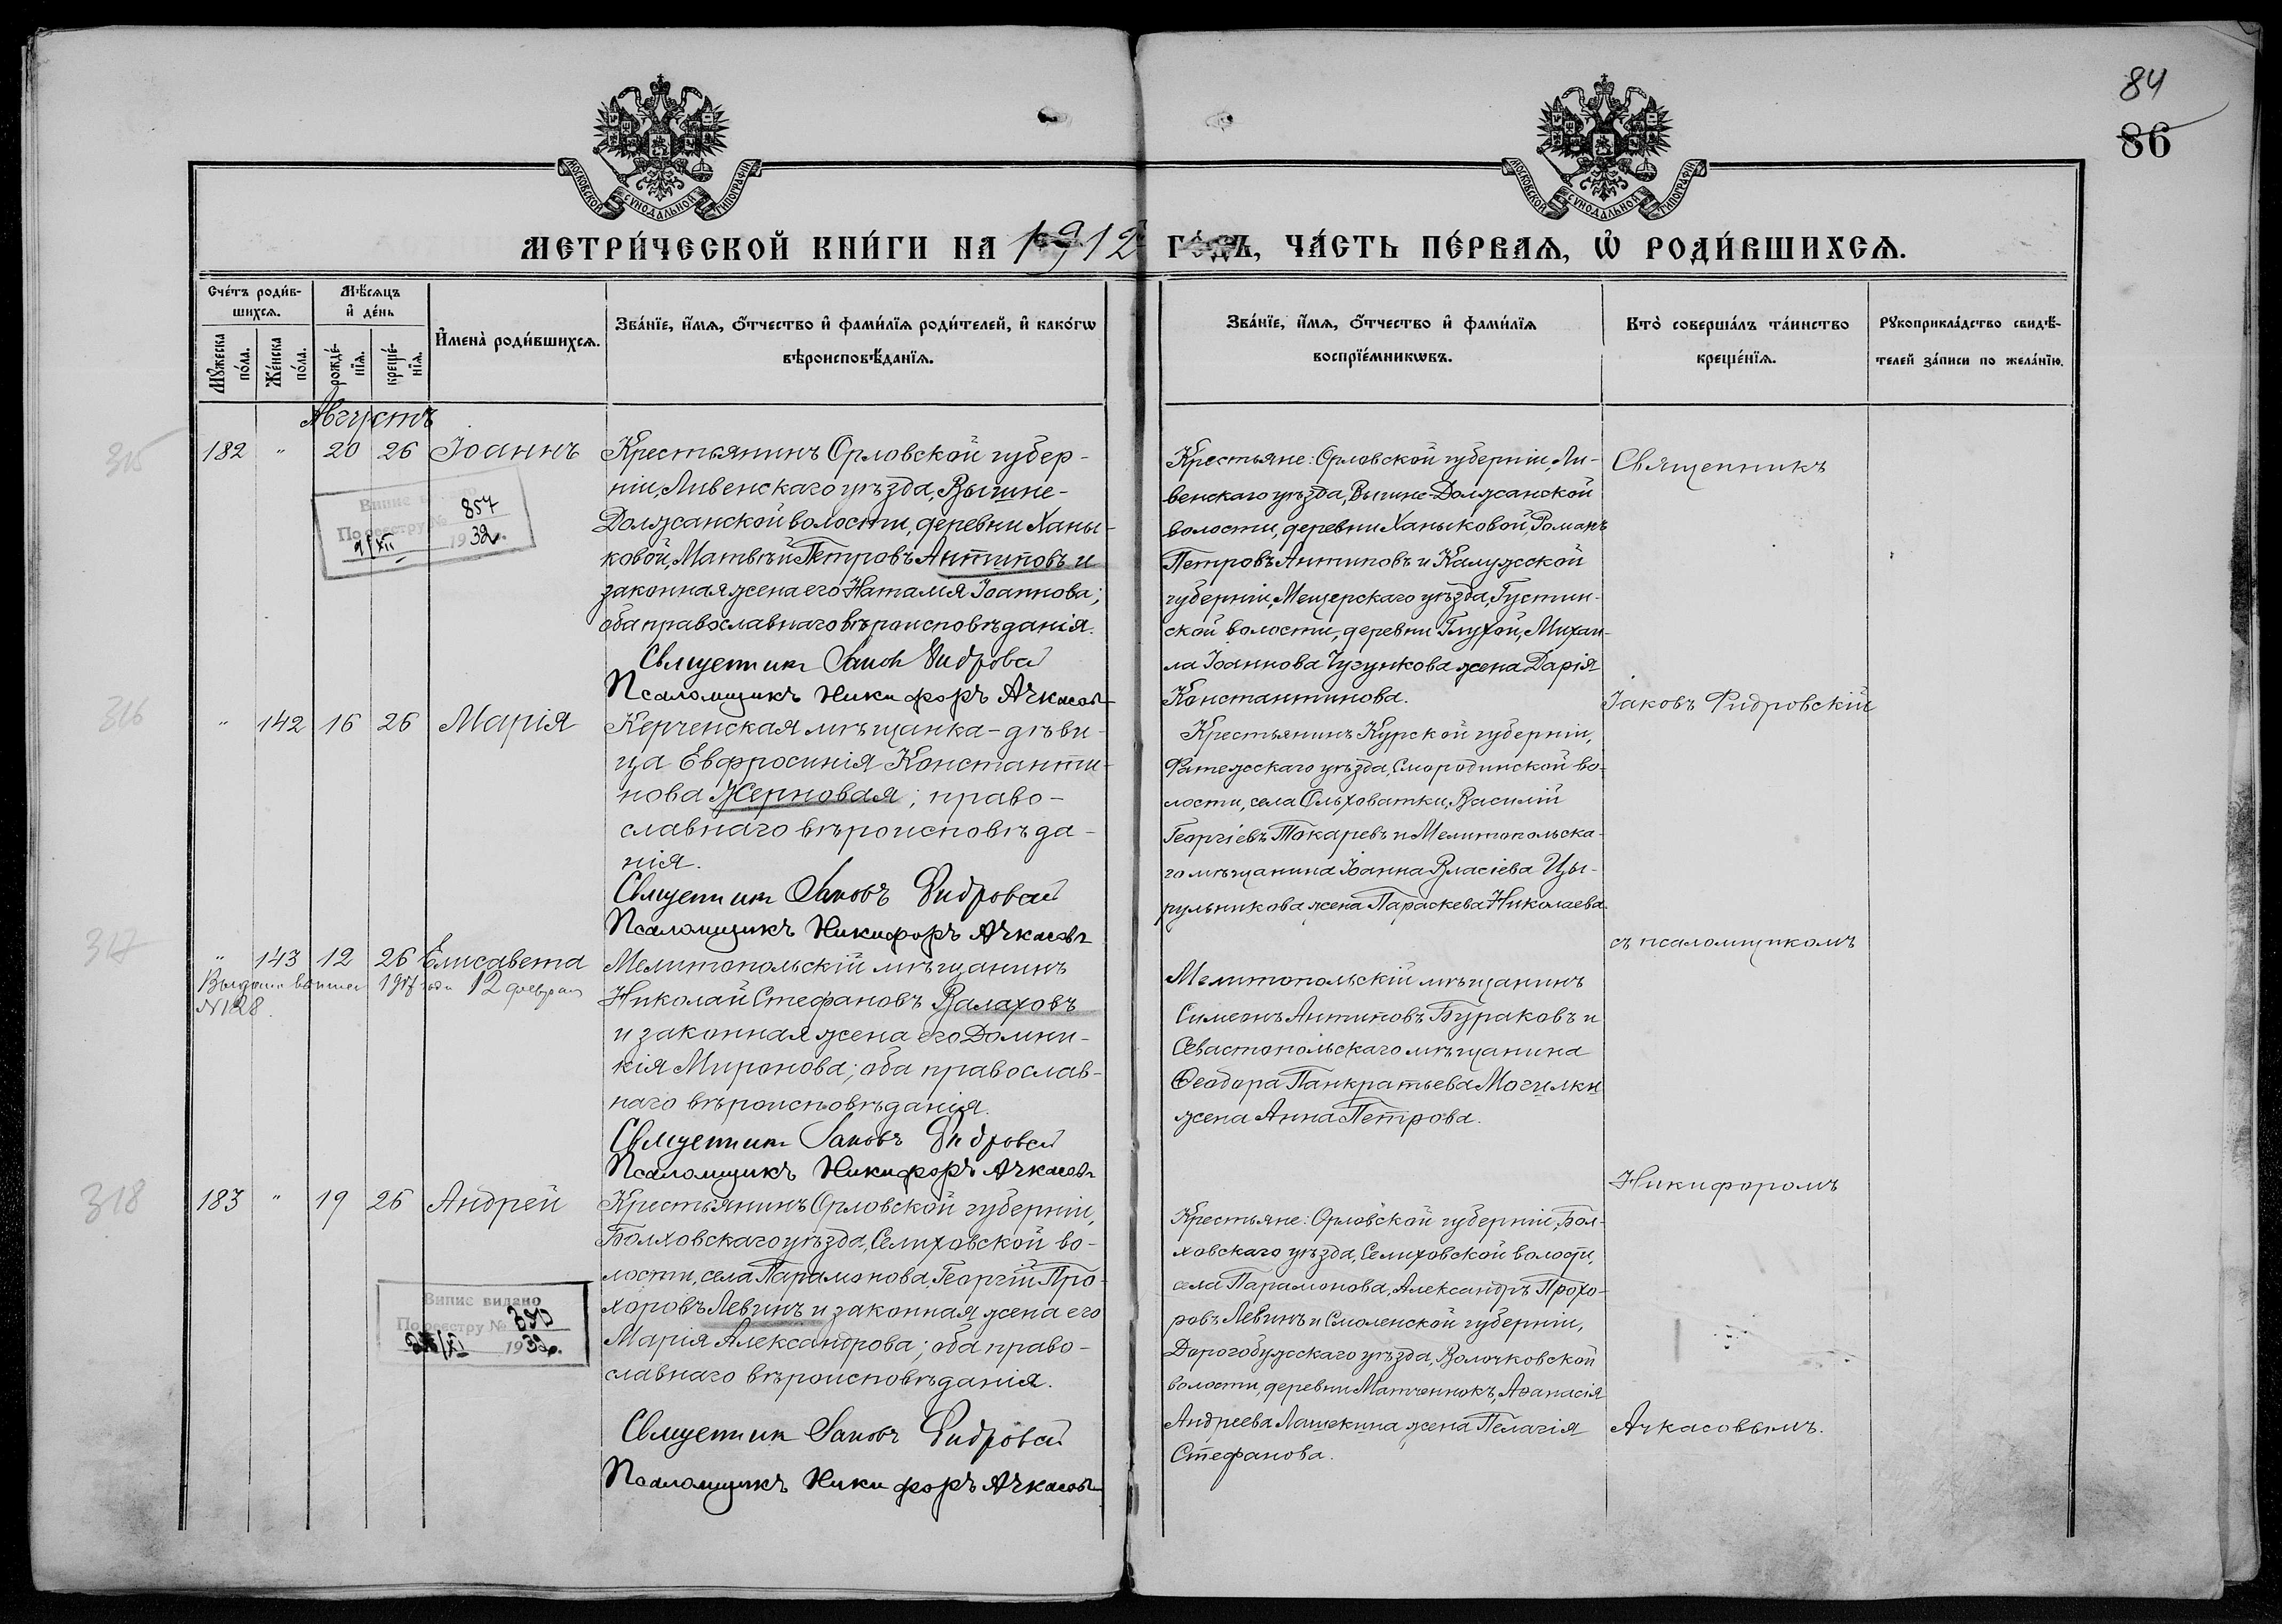 84
86
МОСКОВСКОЙ СУНОДАЛЬНОЙ ТИПОГРАФІИ
МОСКОВСКОЙ СУНОДАЛЬНОЙ ТИПОГРАФІИ
МЕТРИ́ЧЕСКОЙ КНИ́ГИ НА 1912 ГО́ДЪ, ЧА́СТЬ ПЕ́РВАѦ, Ѡ҆ РОДИ́ВШИХСѦ.
Сче́тъ роди́в-
шихсѧ.
Мꙋ́жеска по́ла.
Же́нска по́ла.
Мѣ́сѧцъ
и҆ де́нь
рожде́-
нїѧ.
креще́-
нїѧ.
И҆мена̀ роди́вшихсѧ.
Зва́нїе, и҆́мѧ, ѻ҆́тчество и҆ фами́лїѧ роди́телей, и҆ како́гѡ
вѣроисповѣ́данїѧ.
Зва́нїе, и҆́мѧ, ѻ҆́тчество и҆ фами́лїѧ
воспрїе́мникѡвъ.
Кто̀ соверша́лъ та́инство
креще́нїѧ.
Рꙋкоприкла́дство свидѣ́-
телей за́писи по жела́нїю.
Августъ
315
182 " 20 26 Іоаннъ
Крестьянинъ Орловской губер-
ніи, Ливенскаго уѣзда, Вышне-
Должанской волости, деревни Ханы-
ковой, Матвѣй Петровъ Антиповъ и
законная жена его Наталія Іоаннова;
оба православнаго вѣроисповѣданія.
Священникъ Іаковъ Фидровскій
Псаломщикъ Никифоръ Ачкасовъ
Випис видано
По реестру № 857
9/XII 1932.
Крестьяне: Орловской губерніи, Ли-
венскаго уѣзда, Вышне-Должанской
волости, деревни Ханыковой, Романъ
Петровъ Антиповъ и Калужской
губерніи, Мещерскаго уѣзда, Густин-
ской волости, деревни Глухой, Михаи-
ла Іоаннова Чугункова жена Дарія
Константинова.
Священникъ
316
" 142 16 26 Марія
Керченская мѣщанка-дѣви-
ца Евфросинія Константи-
нова Жерновая; право-
славнаго вѣроисповѣда-
нія.
Священникъ Іаковъ Фидровскій
Псаломщикъ Никифоръ Ачкасовъ
Крестьянинъ Курской губерніи,
Фатежскаго уѣзда, Смородинской во-
лости, села Ольховатки, Василій
Георгіевъ Токаревъ и Мелитопольска-
го мѣщанина Іоанна Власіева Цы-
рульникова жена Параскева Николаева.
Іаковъ Фидровскій
317
" 143 12 26 Елисавета
12 февраля
№128.
Мелитопольскій мѣщанинъ
Николай Стефановъ Валаховъ
и законная жена его Домни-
кія Миронова; оба православ-
наго вѣроисповѣданія.
Священникъ Іаковъ Фидровскій
Псаломщикъ Никифоръ Ачкасовъ
Мелитопольскій мѣщанинъ
Симеонъ Антиповъ Бураковъ и
Севастопольскаго мѣщанина
Ѳеодора Панкратьева Могилки
жена Анна Петрова.
съ псаломщикомъ
318
183 " 19 26 Андрей
Крестьянинъ Орловской губерніи,
Болховскаго уѣзда, Селиховской во-
лости, села Парамонова, Георгій Про-
хоровъ Левинъ и законная жена его
Марія Александрова; оба право-
славнаго вѣроисповѣданія.
Священникъ Іаковъ Фидровскій
Псаломщикъ Никифоръ Ачкасовъ
Випис видано
По реестру №
1932.
Крестьяне: Орловской губерніи, Бол-
ховскаго уѣзда, Селиховской волости,
села Парамонова, Александръ Прохо-
ровъ Левинъ и Смоленской губерніи,
Дорогобужскаго уѣзда, Волочковской
волости, деревни Матченокъ, Аѳанасія
Андреева Лашекина жена Пелагія
Стефанова.
Никифоромъ
Ачкасовымъ.